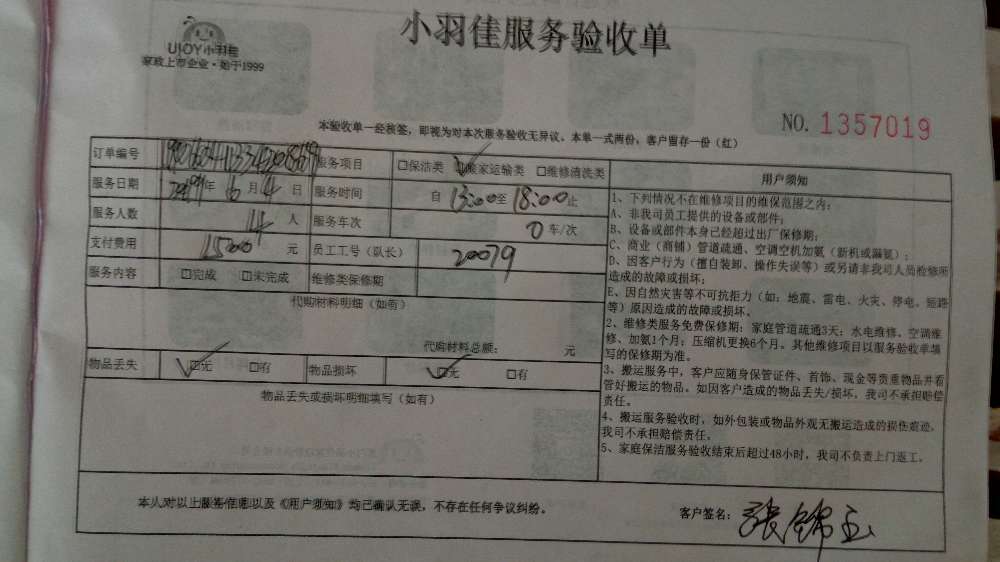 UJOY小羽佳
家政上市企业·始于1999
小羽佳服务验收单
NO. 1357019
本验收单一经核签，即视为对本次服务验收无异议。本单一式两份，客户留存一份（红）
订单编号 服务项目 □保洁类 □搬家运输类 □维修清洗类
服务日期 年 6月4日 服务时间 自13:00至18:00止
服务人数 4人 服务车次 0车/次
支付费用 1500元 员工工号（队长） 20079
服务内容 □完成 □未完成 维修类保修期
代购材料明细（如有）
代购材料总额： 元
物品丢失 □无 □有 物品损坏 □无 □有
物品丢失或损坏明细填写（如有）
用户须知
1、下列情况不在维修项目的维保范围之内：
A、非我司员工提供的设备或部件；
B、设备或部件本身已经超过出厂保修期；
C、商业（商铺）管道疏通、空调空机加氨（新机或漏氨）；
D、因客户行为（擅自装卸、操作失误等）或另请非我司人员检修所
造成的故障或损坏；
E、因自然灾害等不可抗拒力（如：地震、雷电、火灾、停电、短路
等）原因造成的故障或损坏。
2、维修类服务免费保修期：家庭管道疏通3天；水电维修、空调维
修、加氨1个月；压缩机更换6个月。其他维修项目以服务验收单填
写的保修期为准。
3、搬运服务中，客户应随身保管证件、首饰、现金等贵重物品并看
管好搬运的物品。如因客户造成的物品丢失/损坏，我司不承担赔偿
责任。
4、搬运服务验收时，如外包装或物品外观无搬运造成的损伤痕迹，
我司不承担赔偿责任。
5、家庭保洁服务验收结束后超过48小时，我司不负责上门返工。
本人对以上服务信息以及《用户须知》均已确认无误，不存在任何争议纠纷。
客户签名：张锦玉